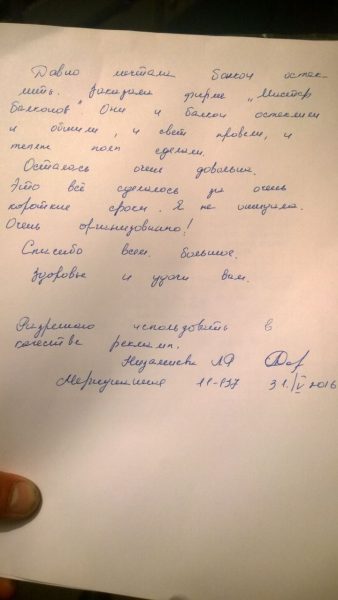 Давно мечтали балкон остек-
лить. Заказали фирме „Мистер
балконов" Они и балкон остеклили
и обшили, и свет провели, и
теплые пол сделали.
Осталась очень довольна.
Это всё сделалось за очень
короткие сроки. Я не ожидала.
Очень организованно!
Спасибо всем большое.
Здоровье и удачи вам.
Разрешаю использовать в
качестве рекламы.
ЛФ
11-137 31/V 2016